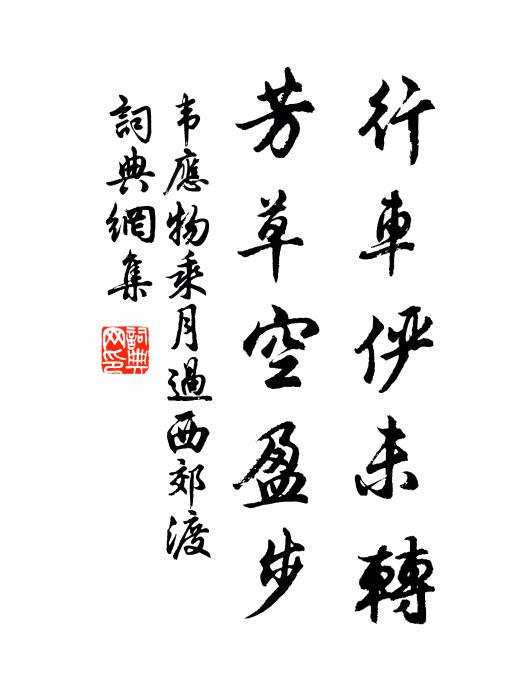 行車儼未轉
芳草空盈步
韦應物乘月過西郊渡
詞典網集
詞典
网印